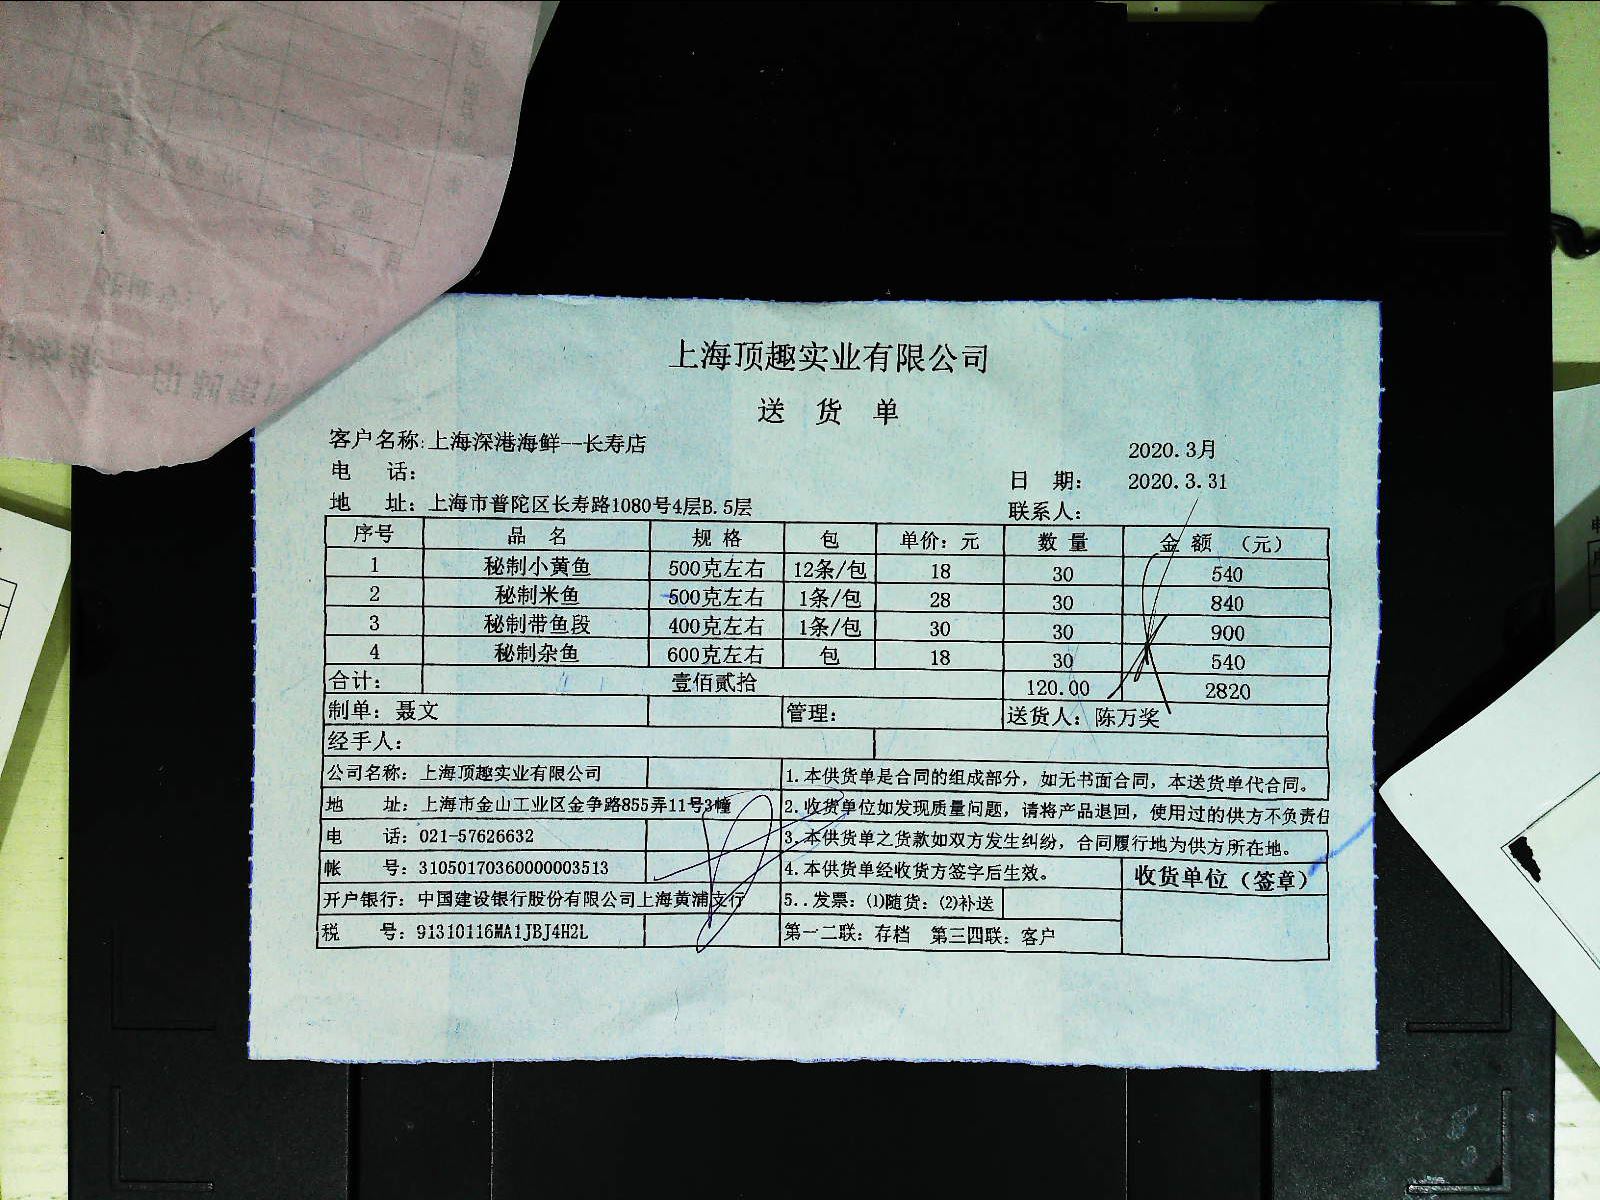 上海顶趣实业有限公司
送 货 单
客户名称:上海深港海鲜--长寿店
2020.3月
电 话:
日 期: 2020.3.31
地 址: 上海市普陀区长寿路1080号4层B.5层
联系人:
序号 品 名 规 格 包 单价:元 数 量 金 额 (元)
1 秘制小黄鱼 500克左右 12条/包 18 30 540
2 秘制米鱼 500克左右 1条/包 28 30 840
3 秘制带鱼段 400克左右 1条/包 30 30 900
4 秘制杂鱼 600克左右 包 18 30 540
合计: 壹佰贰拾 120.00 2820
制单: 聂文 管理: 送货人: 陈万奖
经手人:
公司名称: 上海顶趣实业有限公司 1.本供货单是合同的组成部分,如无书面合同,本送货单代合同。
地 址: 上海市金山工业区金争路855弄11号3幢 2.收货单位如发现质量问题,请将产品退回,使用过的供方不负责任
电 话: 021-57626632 3.本供货单之货款如双方发生纠纷,合同履行地为供方所在地。
帐 号: 31050170360000003513 4.本供货单经收货方签字后生效。 收货单位(签章)
开户银行: 中国建设银行股份有限公司上海黄浦支行 5..发票:(1)随货:(2)补送
税 号: 91310116MA1JBJ4H2L 第一二联: 存档 第三四联: 客户